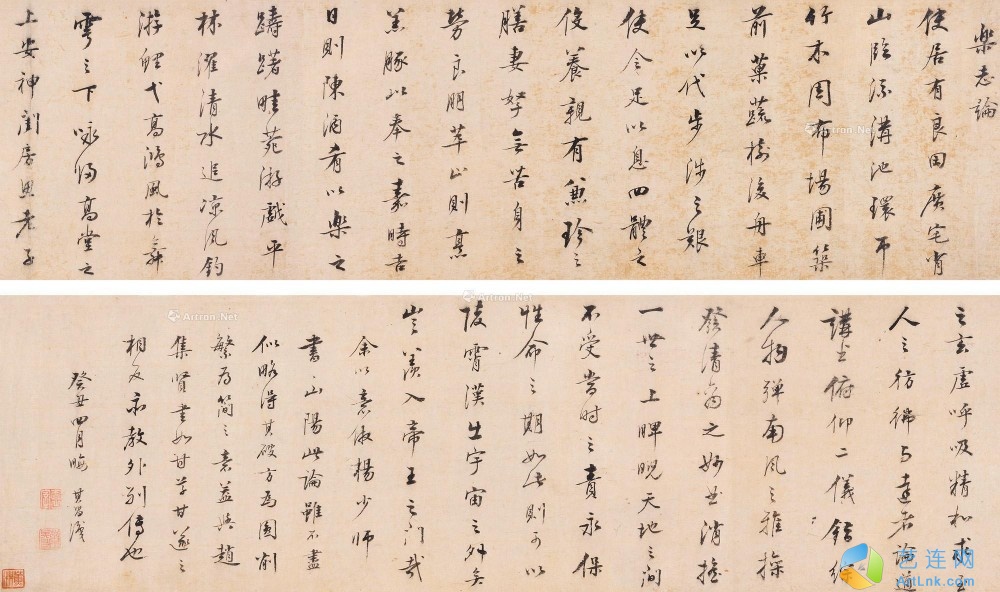 樂志論
使居有良田廣宅背
山臨流溝池環帀
竹木周布場圃築
前菓蔬樹後舟車
足以代步涉之艱
使令足以息四體之
役養親有兼珍之
膳妻孥無苦身之
勞良朋萃止則烹
羔豚以奉之嘉時吉
日則陳酒肴以樂之
躊躇畦苑游戲平
林濯清水追凉風釣
游鯉弋高鴻風於舞
雩之下咏歸高堂之
上安神閨房思老子
之玄虛呼吸精和求至
人之彷彿与達者論道
講書俯仰二儀錯綜
人物彈南風之雅操
發清商之妙曲消搖
一世之上睥睨天地之間
不受當時之責永保
性命之期如此則可以
陵霄漢出宇宙之外矣
豈羨入帝王之門哉
余以意倣楊少師
書山陽此論雖不盡
似略得其破方為圓削
繁為簡之意蓋悟趙
集賢書如甘草甘遂之
相反亦教外別傳也
癸丑四月晦 其昌識
Artron.Net
Artron.Net
Artron.Net
Artron.Net
艺连网
ArtLnk.com